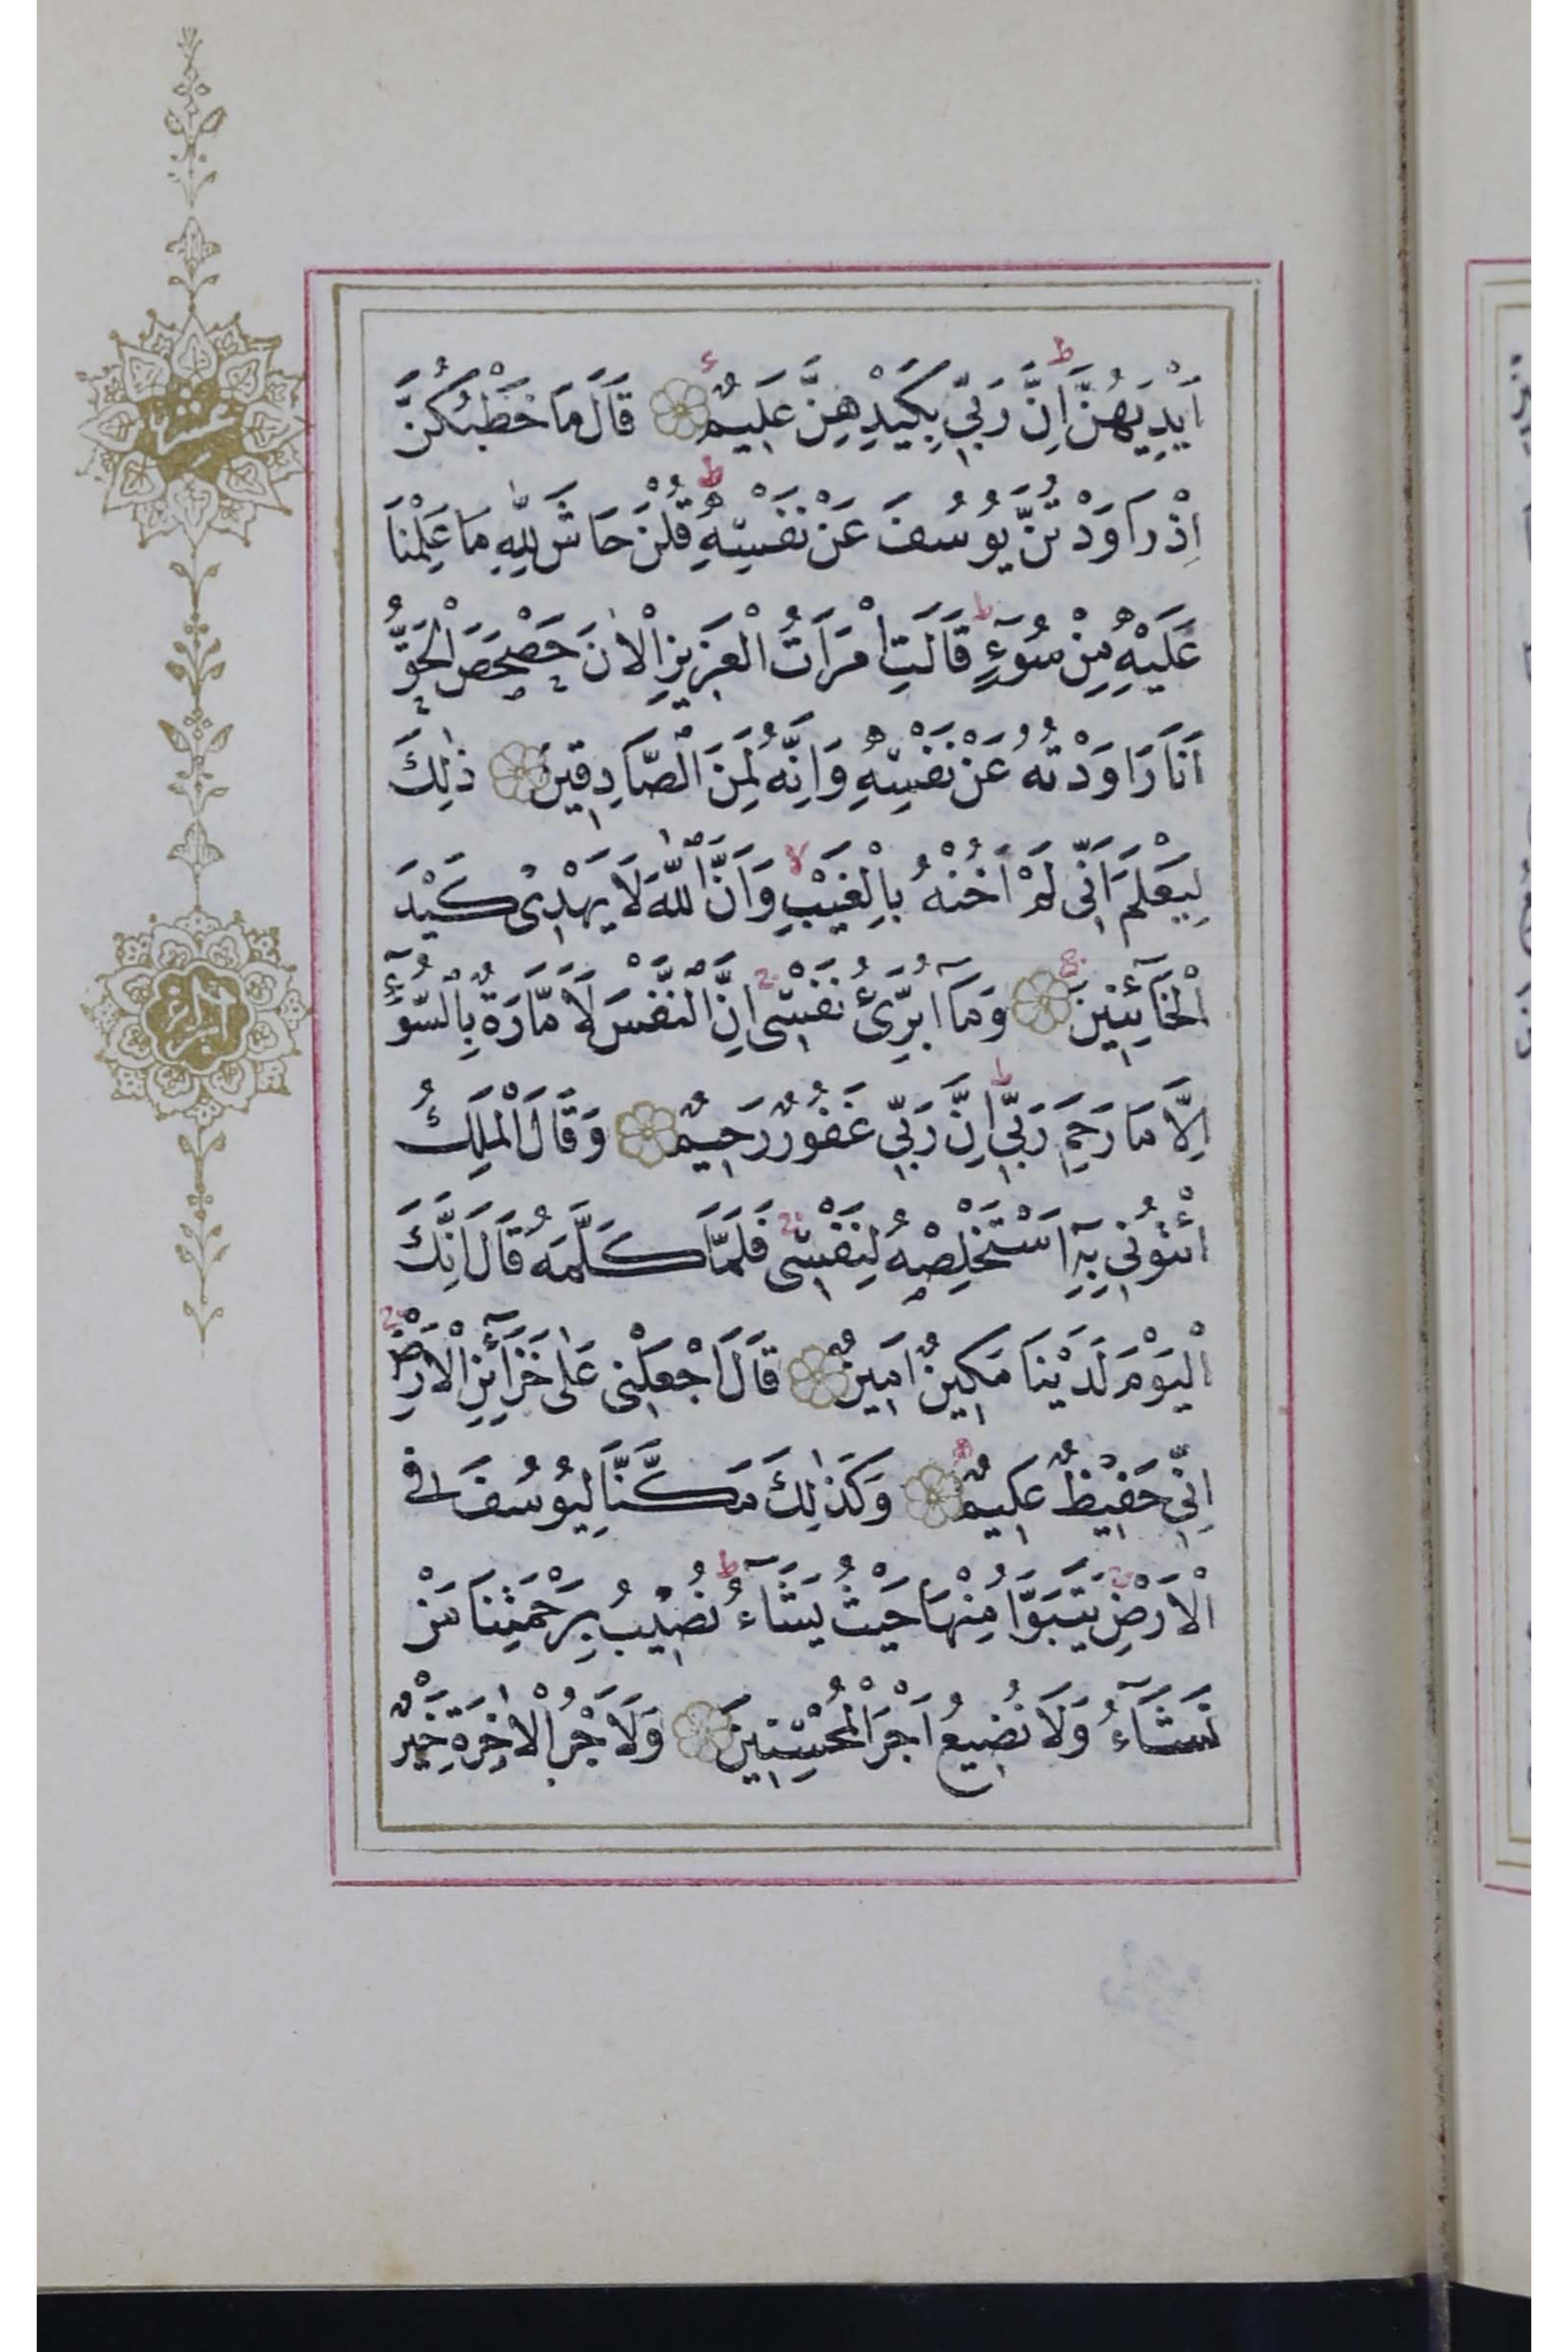 اَيْدِيَهُنَّ اِنَّ رَبِّي بِكَيْدِهِنَّ عَلِيمٌ قَالَ مَا خَطْبُكُنَّ
اِذْ رَاوَدْتُنَّ يُوسُفَ عَنْ نَفْسِهِ قُلْنَ حَاشَ لِلّٰهِ مَا عَلِمْنَا
عَلَيْهِ مِنْ سُوٓءٍ قَالَتِ امْرَاَتُ الْعَزِيزِ الْاٰنَ حَصْحَصَ الْحَقُّ
اَنَا رَاوَدْتُهُ عَنْ نَفْسِهِ وَاِنَّهُ لَمِنَ الصَّادِقِينَ ذٰلِكَ
لِيَعْلَمَ اَنِّى لَمْ اَخُنْهُ بِالْغَيْبِ وَاَنَّ اللّٰهَ لَا يَهْدِى كَيْدَ
الْخَآئِنِينَ وَمَآ اُبَرِّئُ نَفْسِى اِنَّ النَّفْسَ لَاَمَّارَةٌ بِالسُّوٓءِ
اِلَّا مَا رَحِمَ رَبِّي اِنَّ رَبِّي غَفُورٌ رَحِيمٌ وَقَالَ الْمَلِكُ
ائْتُونِي بِهِٓ اَسْتَخْلِصْهُ لِنَفْسِى فَلَمَّا كَلَّمَهُ قَالَ اِنَّكَ
الْيَوْمَ لَدَيْنَا مَكِينٌ اَمِينٌ قَالَ اجْعَلْنِى عَلٰى خَزَآئِنِ الْاَرْضِ
اِنِّي حَفِيظٌ عَلِيمٌ وَكَذٰلِكَ مَكَّنَّا لِيُوسُفَ فِى
الْاَرْضِ يَتَبَوَّاُ مِنْهَا حَيْثُ يَشَآءُ نُصِيبُ بِرَحْمَتِنَا مَنْ
نَشَآءُ وَلَا نُضِيعُ اَجْرَ الْمُحْسِنِينَ وَلَاَجْرُ الْاٰخِرَةِ خَيْرٌ